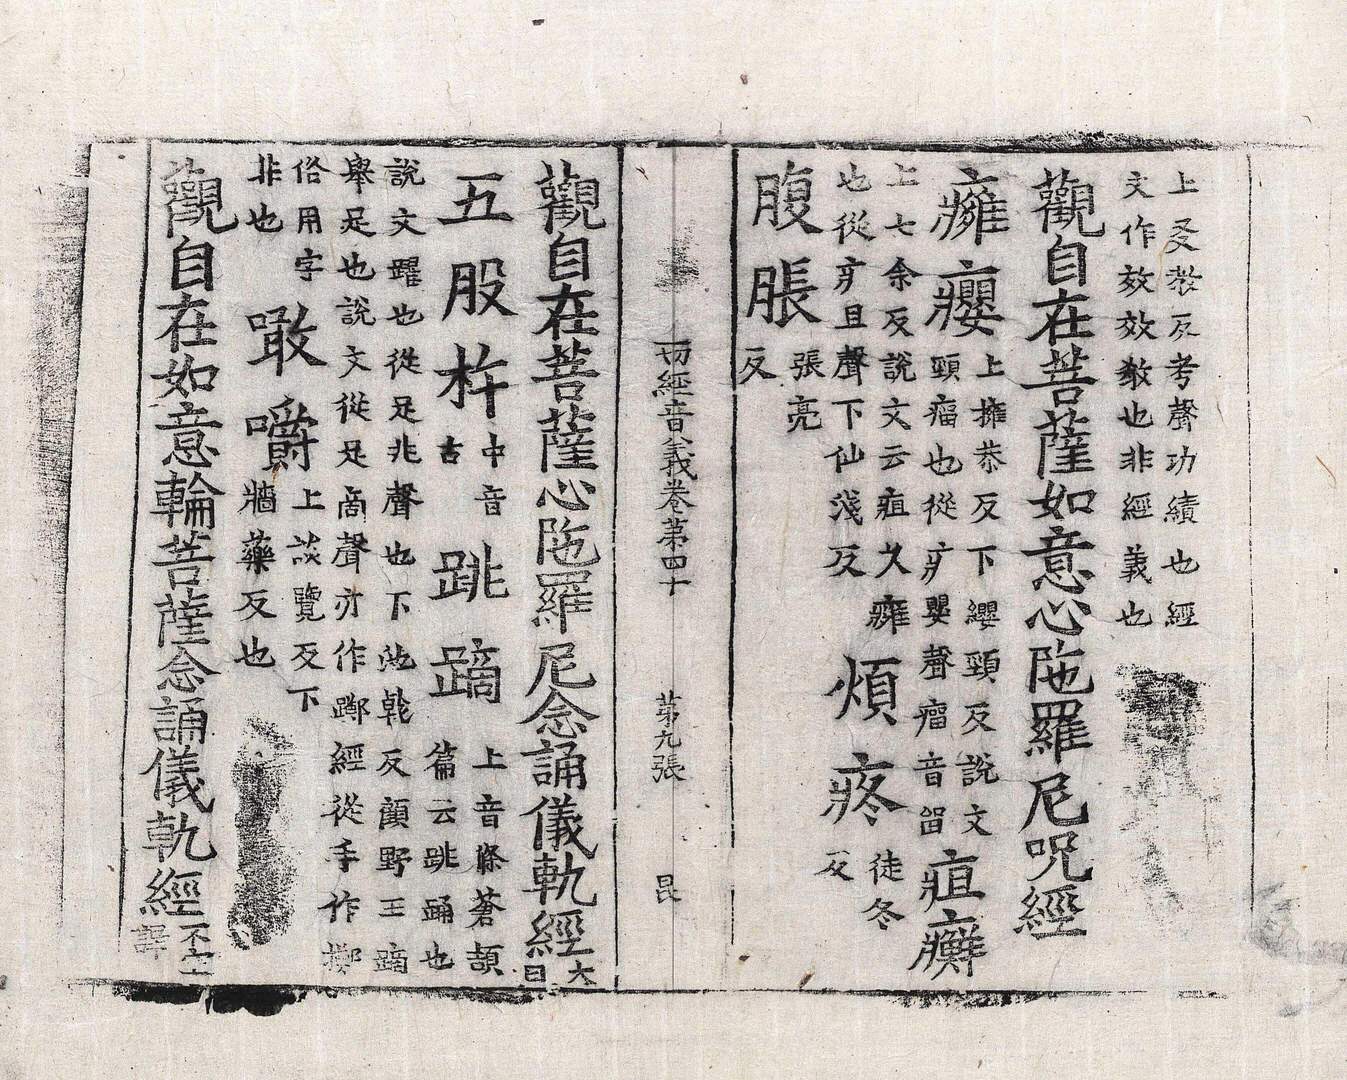 上爻教反考聲功績也經
文作效效教也非經義也
觀自在菩薩如意心陁羅尼呪經
癰癭 上擁恭反下纓頸反說文
頸瘤也從疒嬰聲瘤音留 疽癬
上七余反說文云疽久癰
也從疒且聲下仙淺反 煩疼 徒冬
反
腹脹 張亮
反
一切經音義卷第四十 第九張 昆
觀自在菩薩心陁羅尼念誦儀軌經 大
日
五股杵 中音
古 跳蹢 上音條蒼頡
篇云跳踊也
說文躍也從足兆聲也下池戟反顧野王蹢
舉足也說文從足啇聲亦作躑經從手作擲
俗用字
非也 噉嚼 上談覽反下
牆藥反也
觀自在如意輪菩薩念誦儀軌經 不空
譯